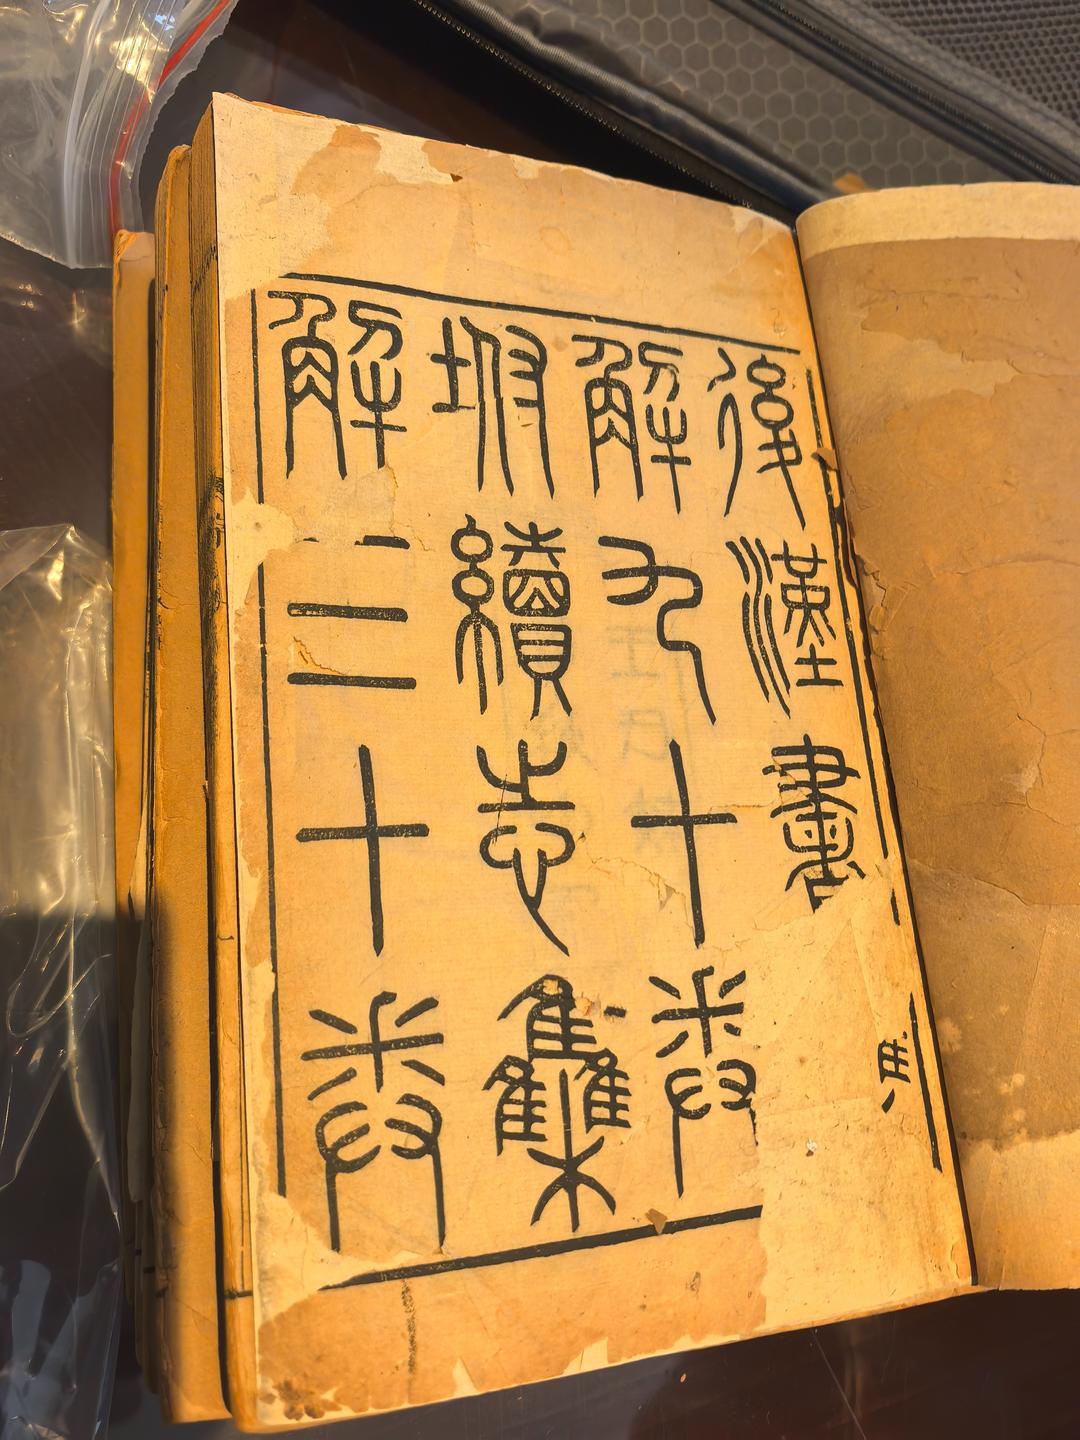 後漢書
解九十卷
坿續志集
解三十卷